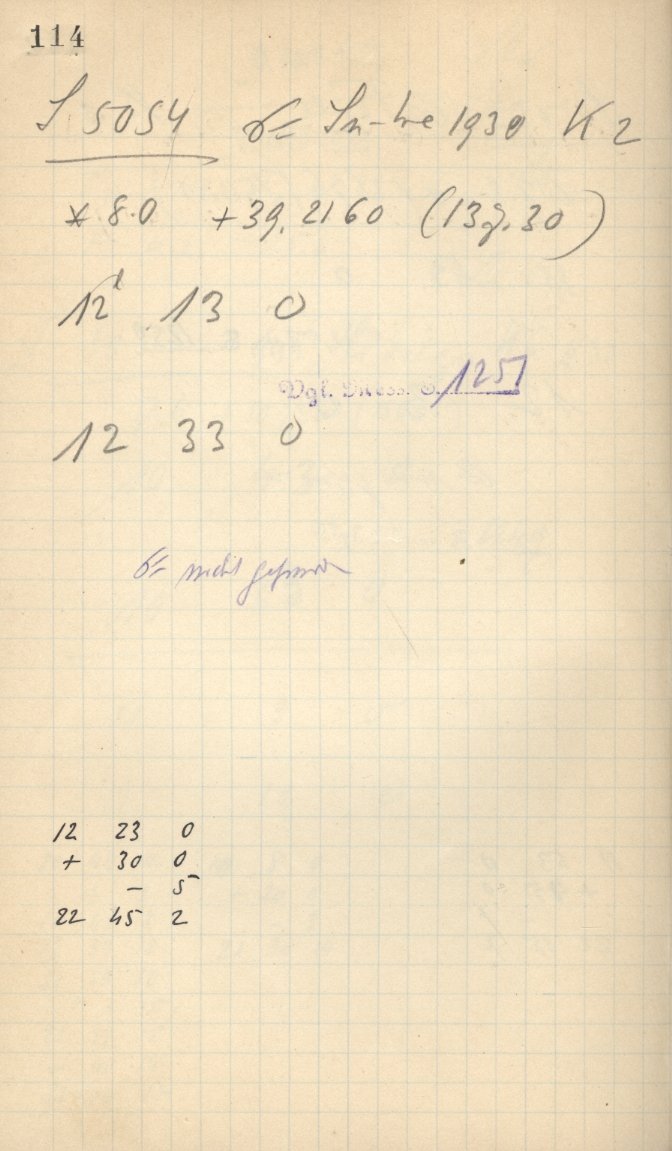 114
S 5054 1930 K 2
* 8.0 +39.2160 (13 30)
12 13 0
Vgl. 1257
12 33 0
nicht gefunden
12 23 0
+ 30 0
- 5
22 45 2